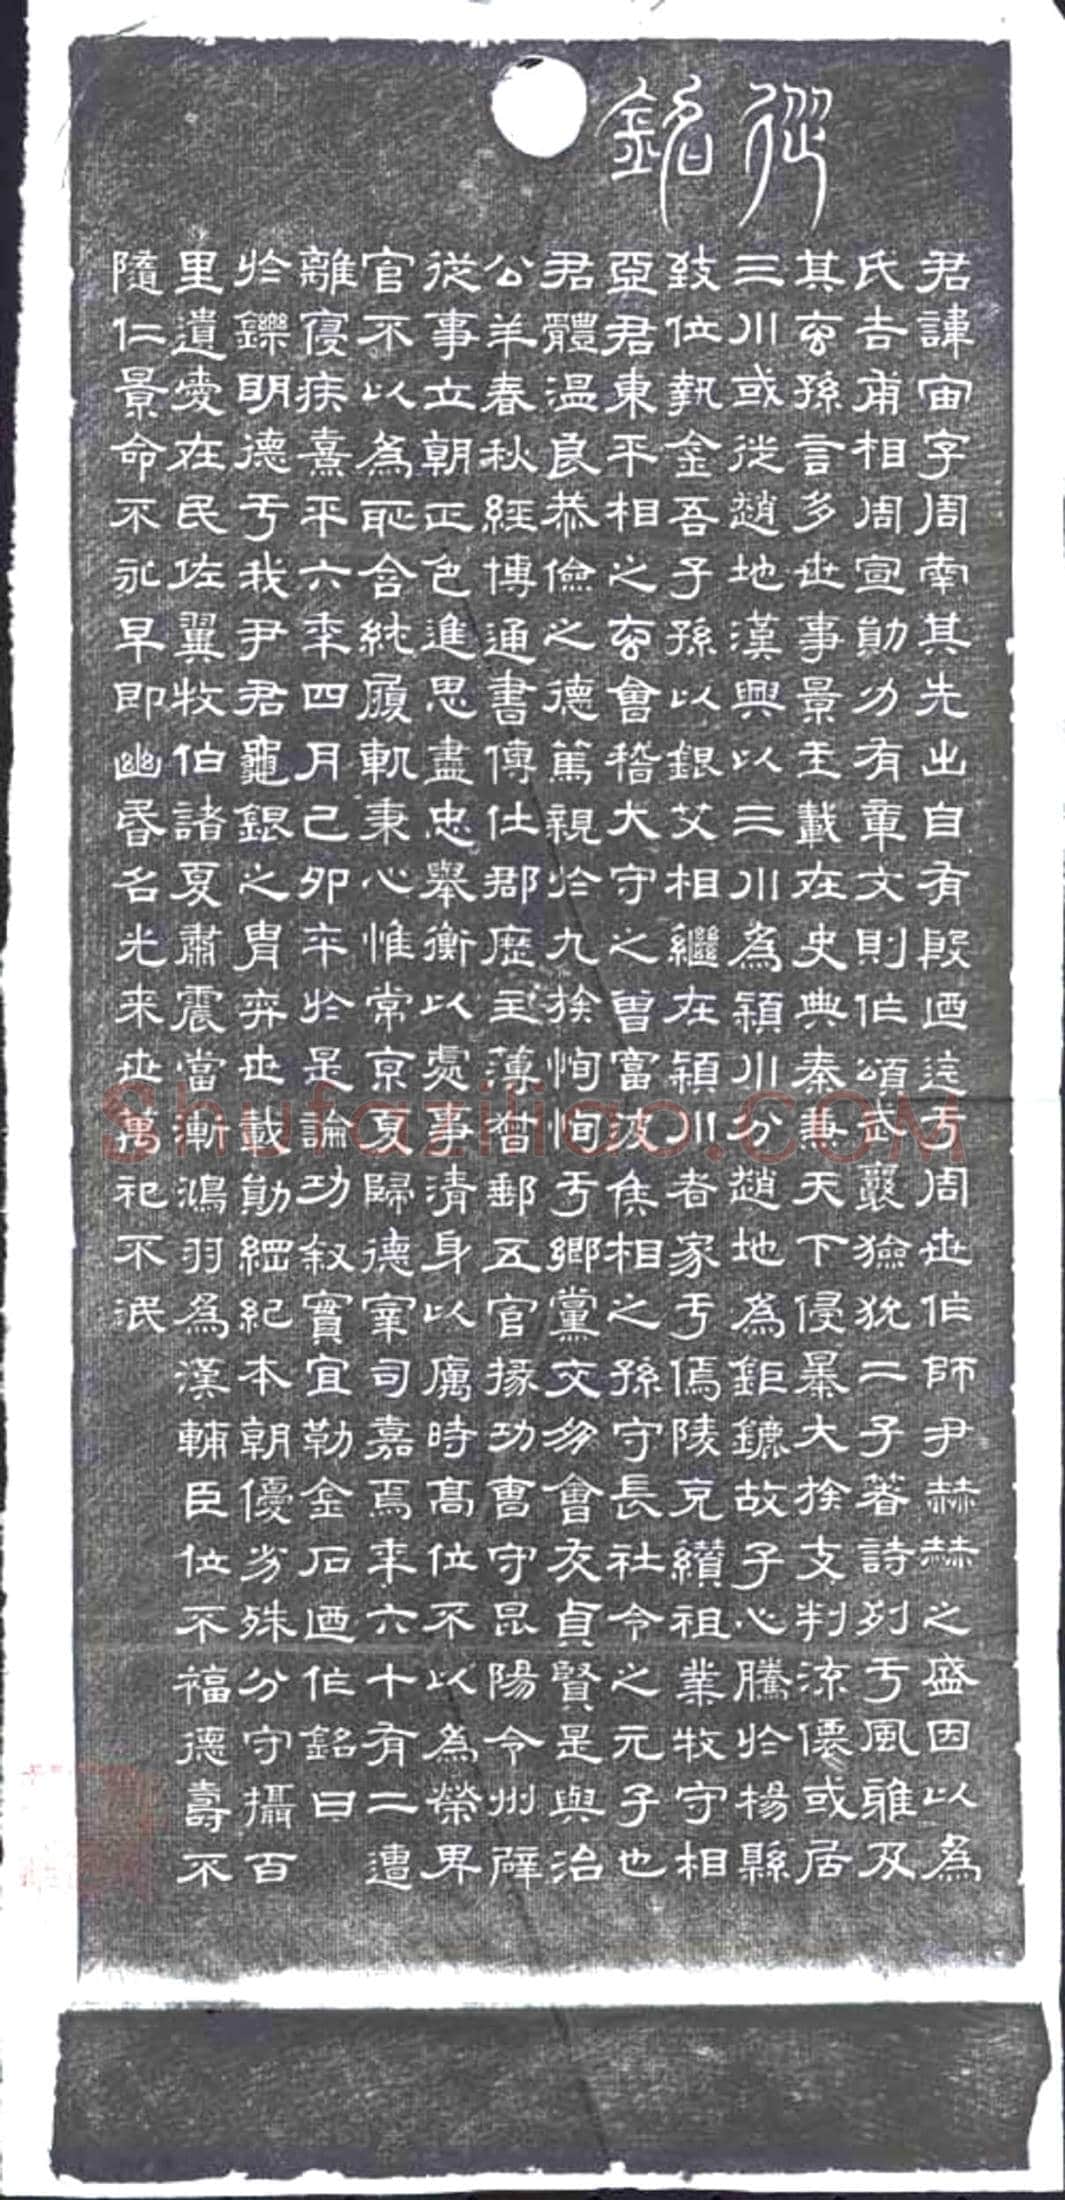 從銘
君諱宙字周南其先出自有殷迺迄于周世作師尹赫赫之盛因以為
氏吉甫相周宣勛力有章文則作頌武襄獫狁二子著詩列于風雅及
其玄孫言多世事景王載在史典秦兼天下侵暴大族支判流僊或居
三川或徙趙地漢興以三川為穎川分趙地為鉅鏕故子心騰於楊縣
致位執金吾子孫以銀艾相繼在穎川者家于傿陵克纘祖業牧守相
亞君東平相之玄會稽大守之曾富波侯相之孫守長社令之元子也
君體温良恭儉之德篤親於九族恂恂于鄉黨交朋會友貞賢是與治
公羊春秋經博通書傳仕郡歷主薄督郵五官掾功曹守昆陽令州辟
從事立朝正色進思盡忠舉衡以處事清身以厲時高位不以為榮卑
官不以為恥含純履軌秉心惟常京夏歸德宰司嘉焉年六十有二遭
離寑疾熹平六年四月己卯卒於是論功叙實宜勒金石迺作銘曰
於鑠明德于我尹君龜銀之胄弈世載勛綱紀本朝優劣殊分守攝百
里遺愛在民佐翼牧伯諸夏肅震當漸鴻羽為漢輔臣位不福德壽不
隨仁景命不永早即幽昏名光来世萬祀不泯
Shufaziliao.COM